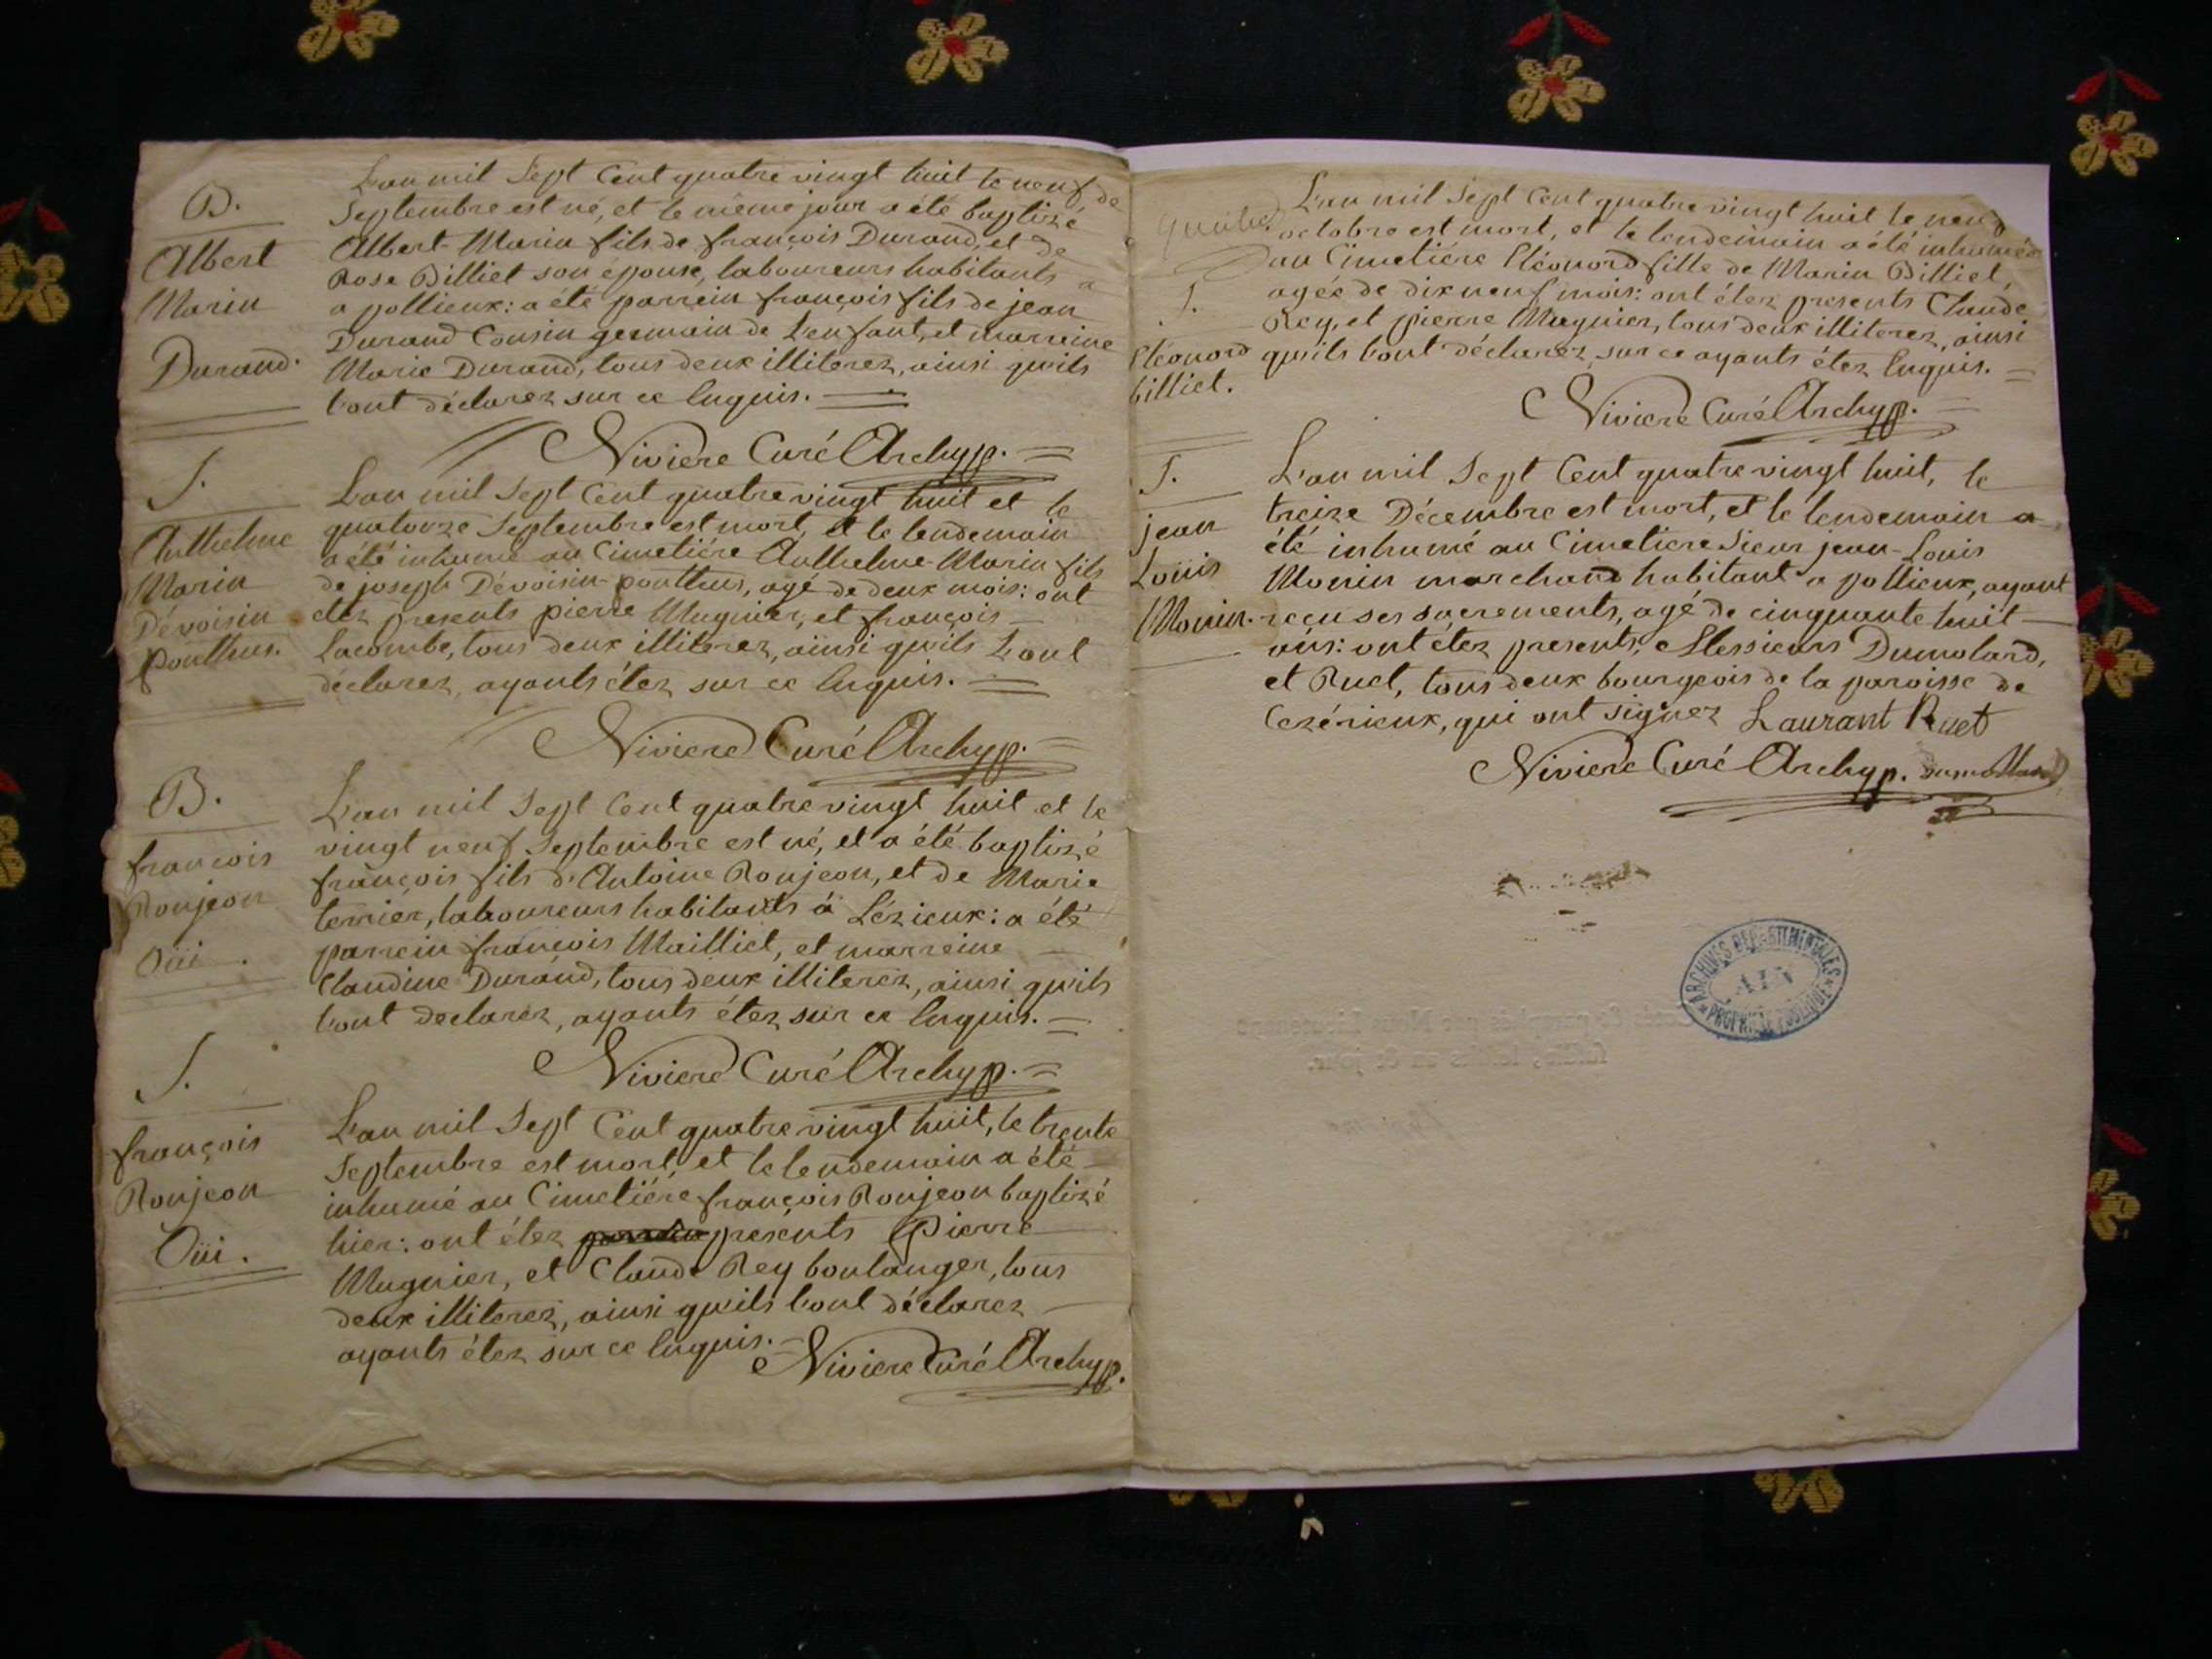 B.
Albert
Marin
Durand.
L'an mil Sept Cent quatre vingt huit le neuf de
Septembre est né, et le même jour a été baptizé
Albert-Marin fils de françois Durand, et de
Rose Billiet son épouse, laboureurs habitants
a pollieux: a été parrein françois fils de jean
Durand Cousin germain de L'enfant, et marreine
Marie Durand, tous deux illiterez, ainsi qu'ils
l'ont déclarez sur ce Enquis.
Niviere Curé Archyp.
S.
Anthelme
Marin
Dévoisin
ponthus.
L'an mil Sept Cent quatre vingt huit et le
quatorze Septembre est mort, et le lendemain
a été inhumé au Cimetiére Anthelme-Marin fils
de joseph Dévoisin-ponthus, agé de deux mois: ont
étez presents pierre Mugnier, et françois
Lacombe, tous deux illiterez, ainsi qu'ils L'ont
déclarez, ayants étez sur ce Enquis.
Niviere Curé Archyp.
B.
françois
Roujeon
Oüi.
L'an mil Sept Cent quatre vingt huit et le
vingt neuf Septembre est né, et a été baptizé
françois fils d'Antoine Roujeon, et de Marie
terrier, laboureurs habitants à Lézieux: a été
parrein françois Mailliet, et marreine
Claudine Durand, tous deux illiterez, ainsi qu'ils
l'ont declarez, ayants étez sur ce Enquis.
Niviere Curé Archyp.
S.
françois
Roujeon
Oüi.
L'an mil Sept Cent quatre vingt huit, le trente
Septembre est mort, et le lendemain a été
inhumé au Cimetiére françois Roujeon baptizé
hier: ont étez presents Pierre
Mugnier, et Claude Rey boulanger, tous
deux illiterez, ainsi qu'ils l'ont déclarez
ayants étez sur ce Enquis.
Niviere Curé Archyp.
S.
Eléonord
billiet.
L'an mil Sept Cent quatre vingt huit le neuf
octobre est mort, et le lendemain a été inhumée
au Cimetiére Eléonord fille de Marin Billiet,
agée de dix neuf mois: ont étez presents Claude
Rey, et pierre Mugnier, tous deux illiterez, ainsi
qu'ils l'ont déclarez, sur ce ayants étez Enquis.
Niviere Curé Archyp.
S.
jean
Loüis
Monin.
L'an mil Sept Cent quatre vingt huit, le
treize Décembre est mort, et le lendemain a
été inhumé au Cimetiere Sieur jean-Louis
Monin marchand habitant a pollieux, ayant
reçu ses sacrements, agé de cinquante huit
ans: ont étez presents, Messieurs Dumolard,
et Ruet, tous deux bourgeois de la paroisse de
Cezérieux, qui ont signez Laurant Ruet
Niviere Curé Archyp. Dumollard
ARCHIVES DEPARTEMENTALES
AIN
PROPRIÉTÉ PUBLIQUE